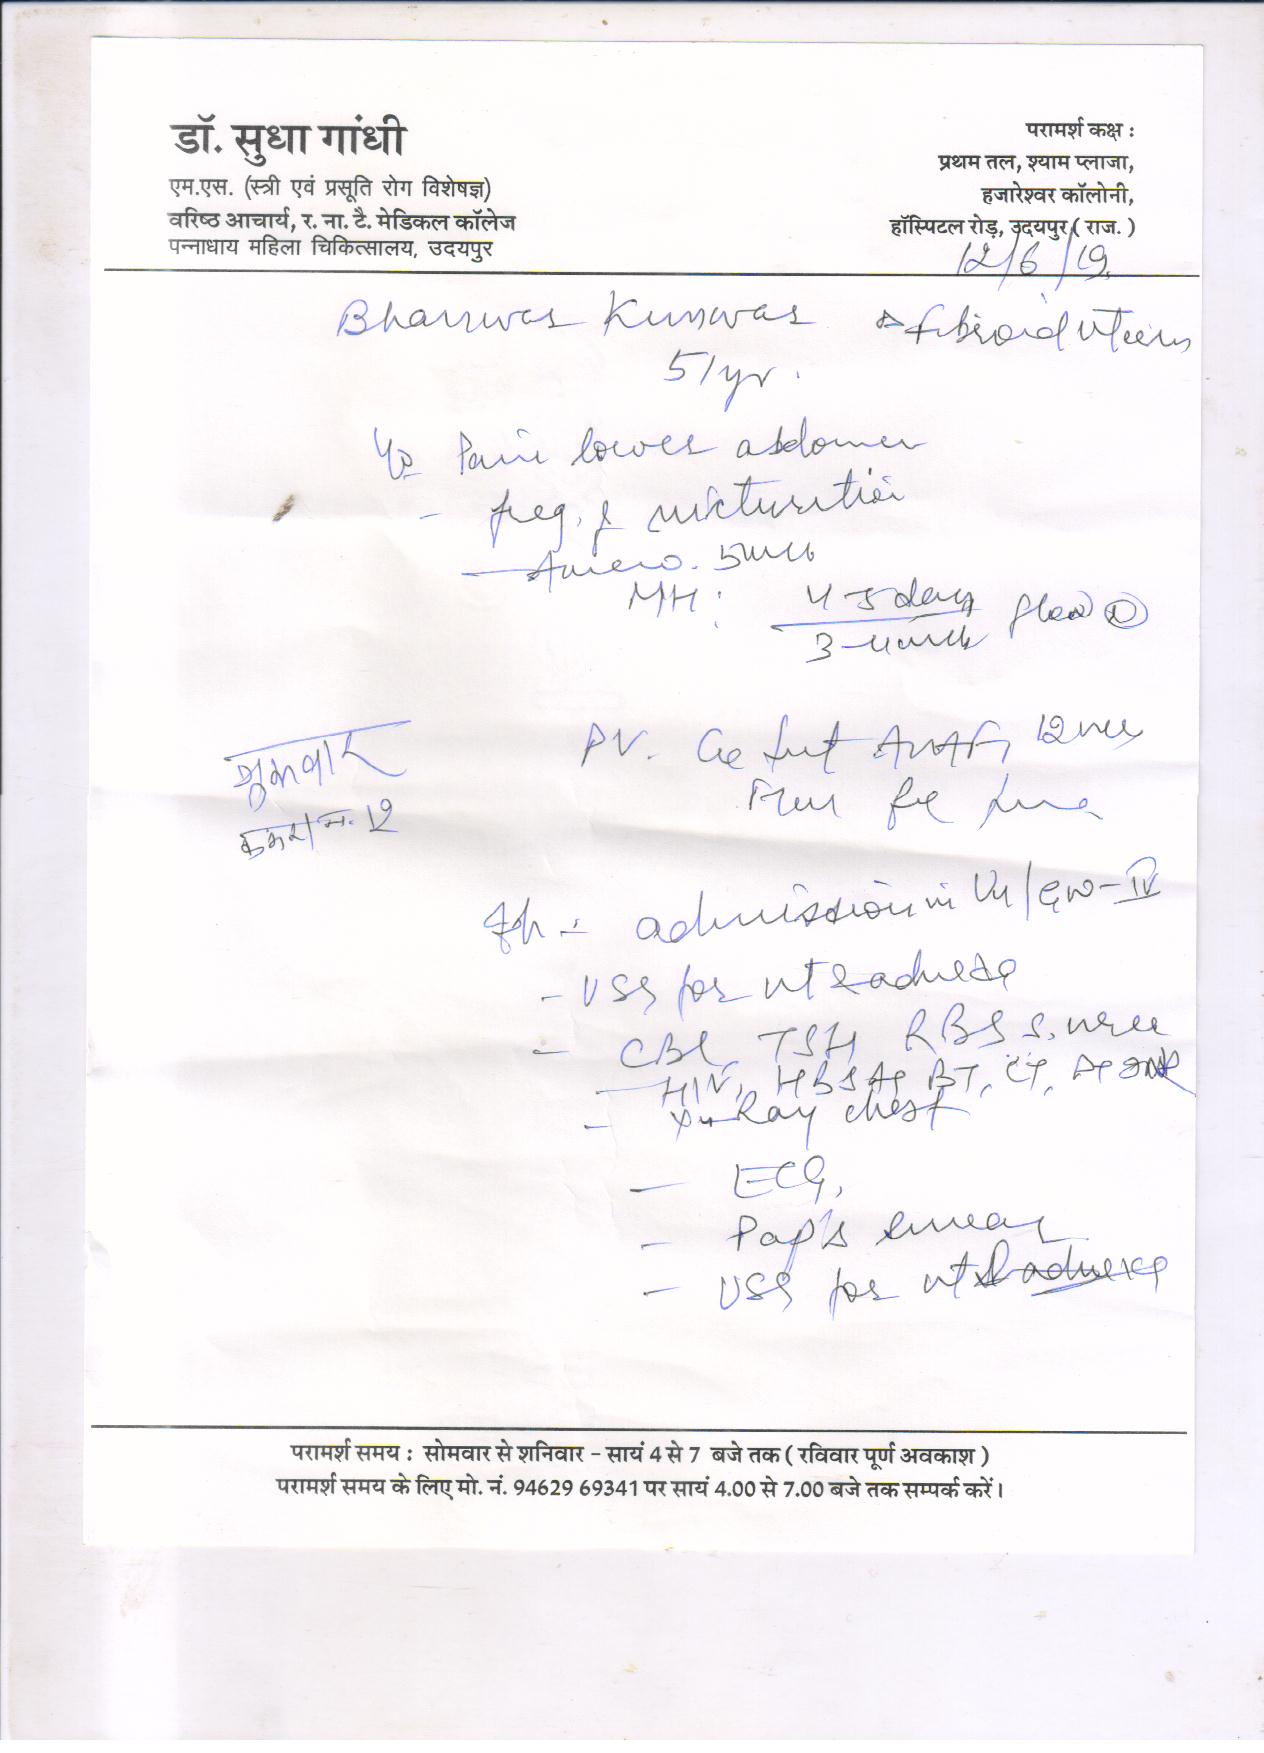 डॉ. सुधा गांधी
एम.एस. (स्त्री एवं प्रसूति रोग विशेषज्ञ)
वरिष्ठ आचार्य, र. ना. टै. मेडिकल कॉलेज
पन्नाधाय महिला चिकित्सालय, उदयपुर
परामर्श कक्ष :
प्रथम तल, श्याम प्लाजा,
हजारेश्वर कॉलोनी,
हॉस्पिटल रोड़, उदयपुर ( राज. )
12/6/19
Bhanwar Kunwar
fibroid uterus
51 yr.
Pain lower abdomen
- freq. of micturition
MH: 4-5 days
3 month flow
PV. 12
शुक्रवार
कमरा न. 12
admission in
- USG for ut & adnexa
- CBC, TSH, RBS S. urea
- HIV, HBSAg BT, CT,
- X-Ray chest
- ECG,
- Pap's smear
- USG for ut & adnexa
परामर्श समय : सोमवार से शनिवार - सायं 4 से 7 बजे तक ( रविवार पूर्ण अवकाश )
परामर्श समय के लिए मो. नं. 94629 69341 पर सायं 4.00 से 7.00 बजे तक सम्पर्क करें।